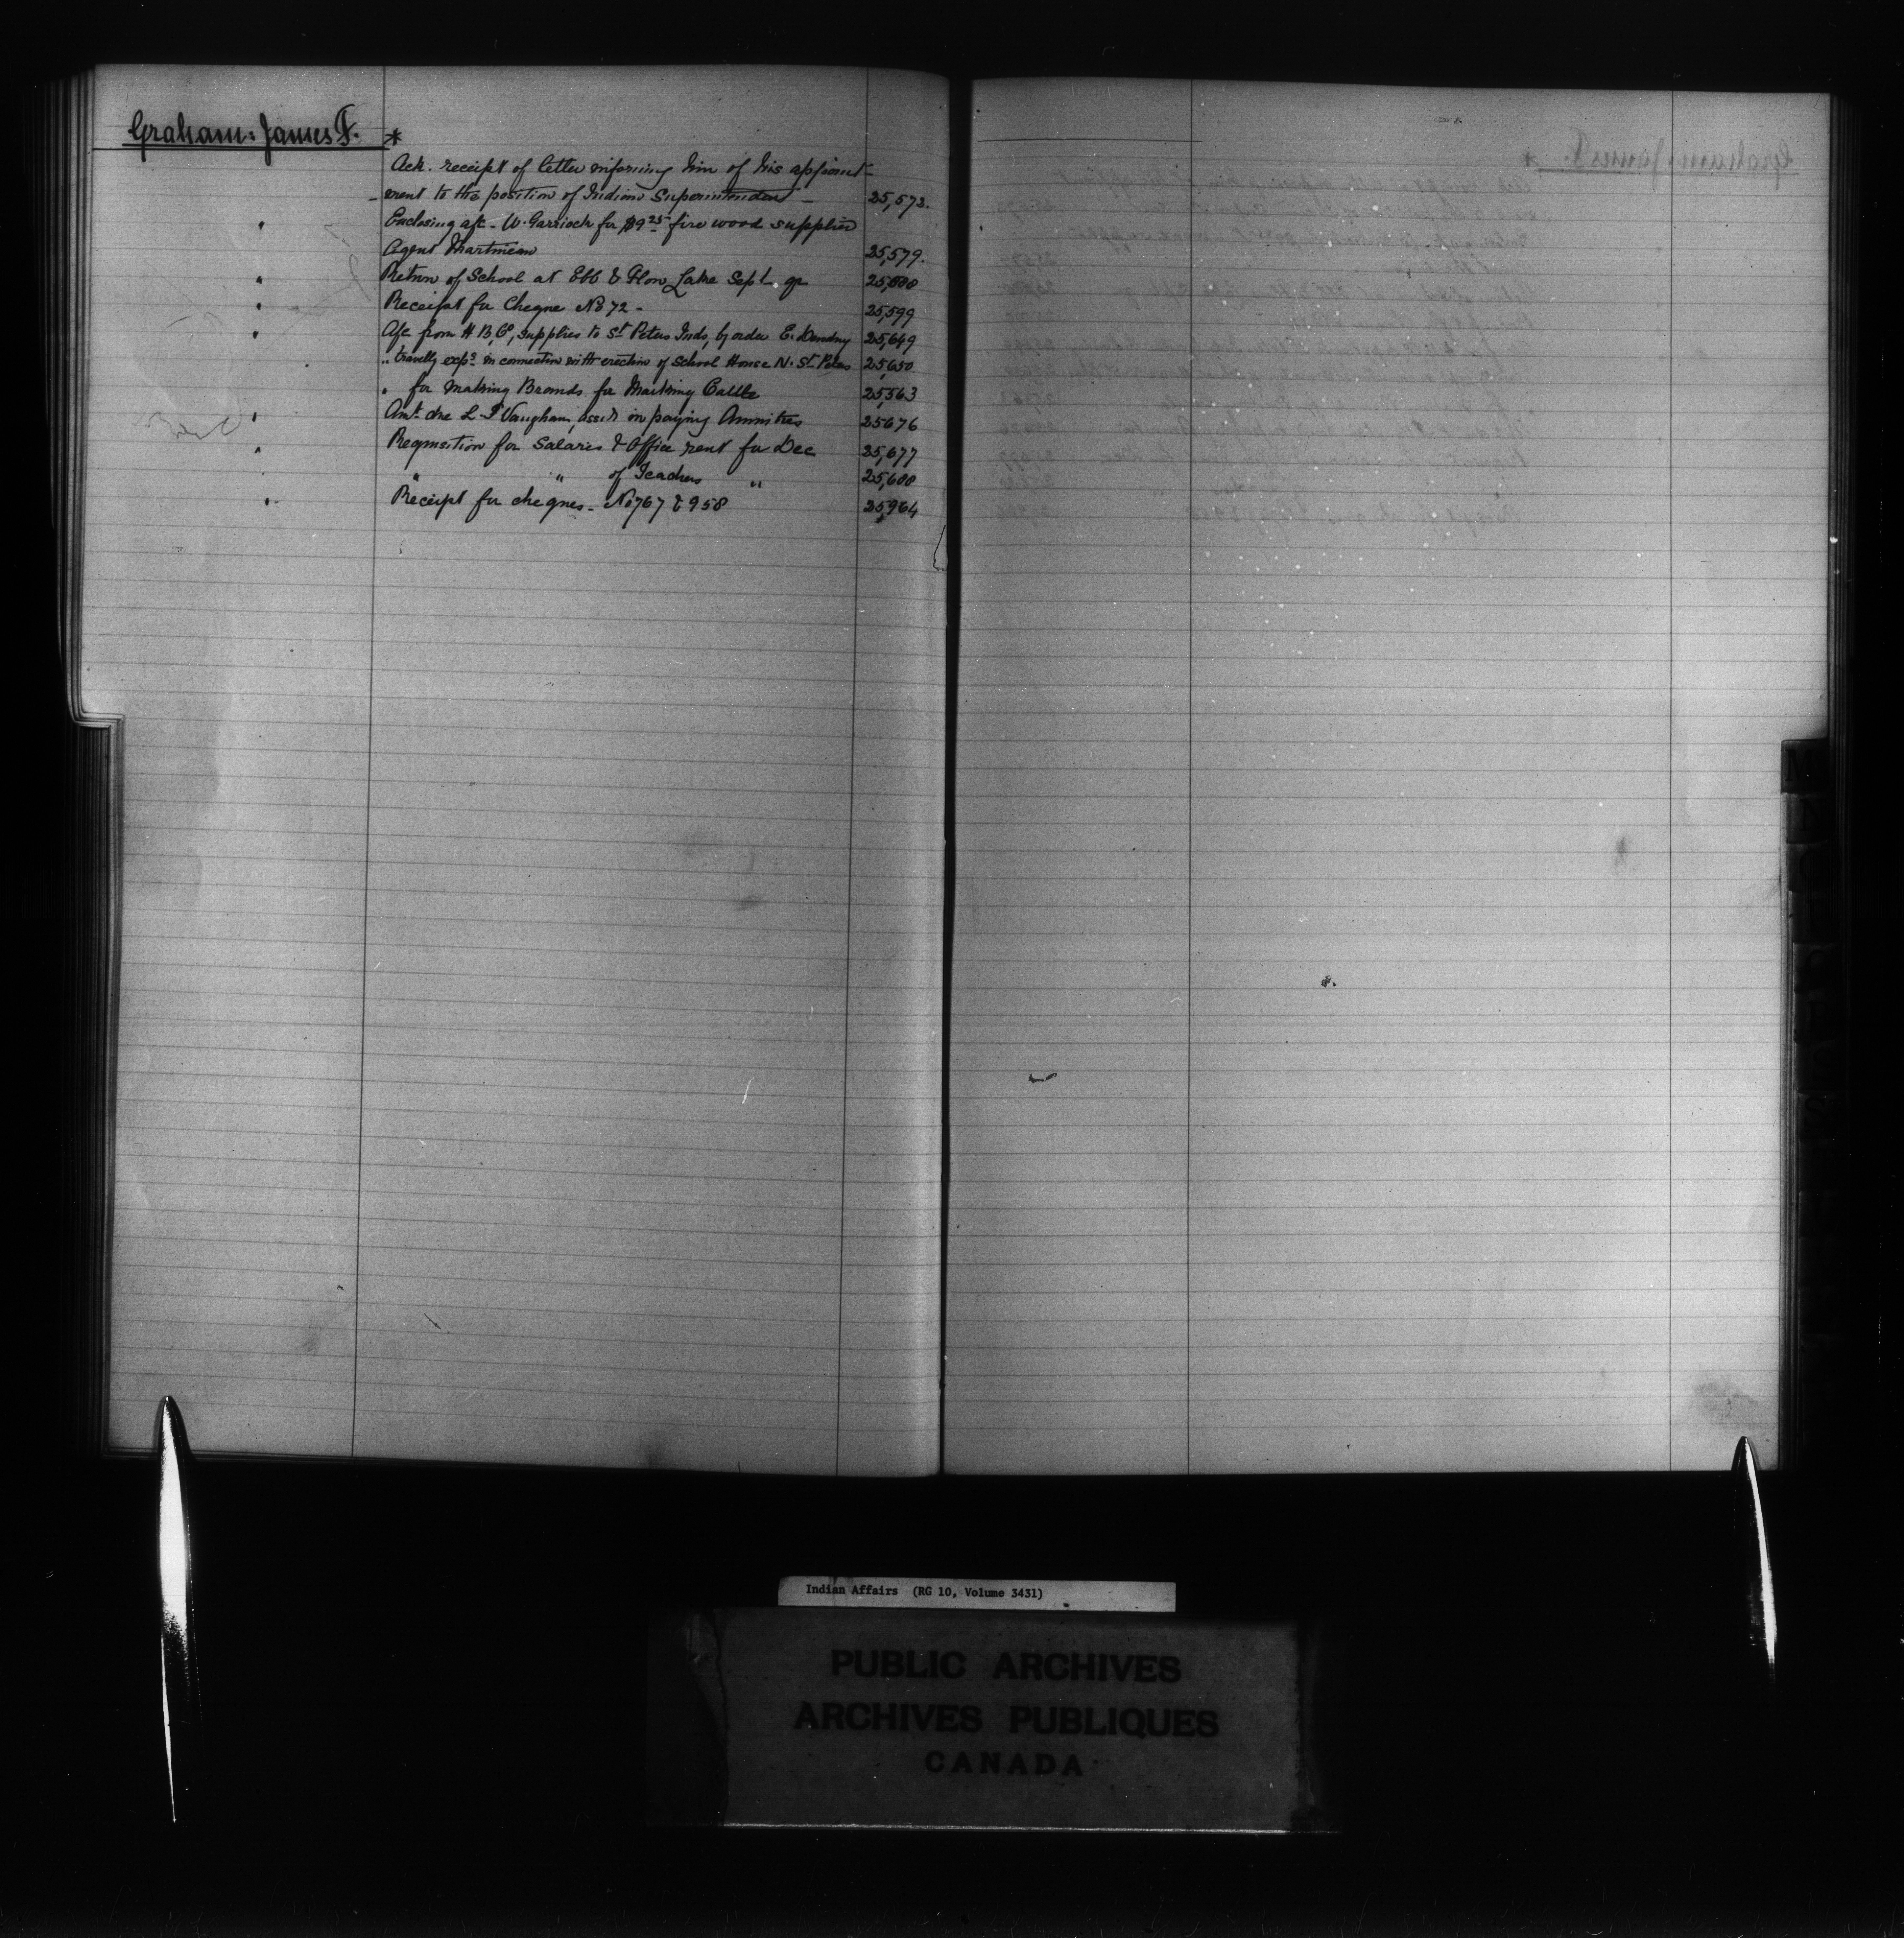 Graham. James F. *
Ack. receipt of letter informing him of his appoint-
-ment to the position of Indian Superintendent - 25,572.
" Enclosing a/c - W. Garrioch for $9 25 fire wood supplied
Agent Martineau 25,579.
" Return of School at Ebb & Flow Lake Sept. qr
" Receipt for Cheque No 72 - 25,599
" A/c from H B, Co, supplies to St Peters Inds, by order E. 25,649
" travellg exps in connection with erection of School House N. St Peters 25,650
" for making Brands for Marking Cattle 25,563
" Amt due L. Vaughan, assist in paying Annuities 25676
" Requisition for Salaries & Office rent for Dec 25,677
" " of Teachers " 25,688
" Receipt for cheques - No 767 & 958 25,964
Indian Affairs (RG 10, Volume 3431)
PUBLIC ARCHIVES
ARCHIVES PUBLIQUES
CANADA